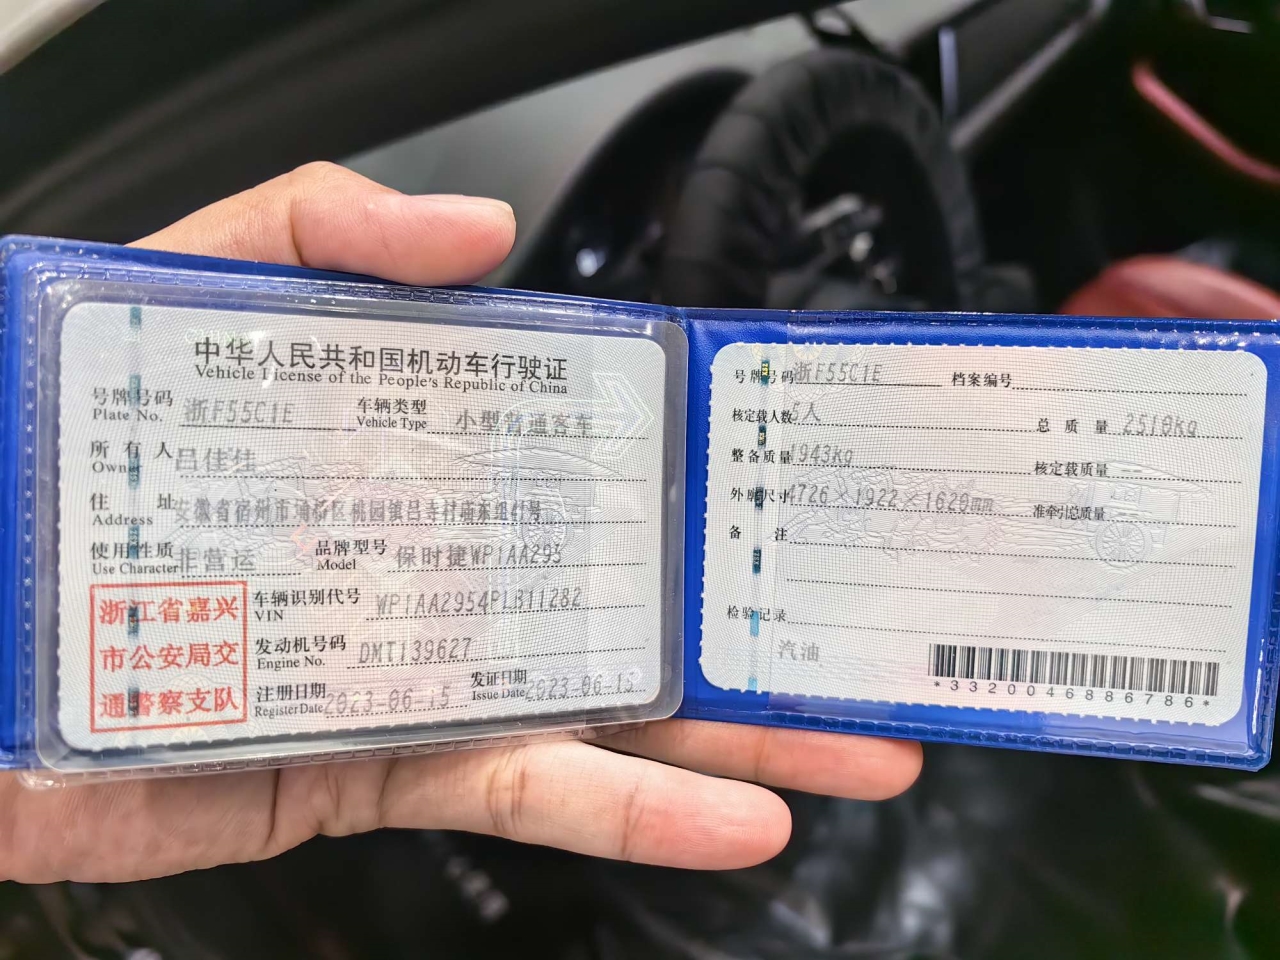 中华人民共和国机动车行驶证
Vehicle License of the People's Republic of China
号牌号码 浙F55C1E 车辆类型 小型普通客车
Plate No. Vehicle Type
所有人 吕佳佳
Owner
住址 安徽省宿州市埇桥区桃园镇吕寺村庙东组41号
Address
使用性质 非营运 品牌型号 保时捷WP1AA295
Use Character Model
浙江省嘉兴
市公安局交
通警察支队
车辆识别代号 WP1AA2954PLB11282
VIN
发动机号码 DMT139627
Engine No.
注册日期 2023-06-15 发证日期 2023-06-15
Register Date Issue Date
号牌号码 浙F55C1E 档案编号
核定载人数 5人 总质量 2510Kg
整备质量 1943Kg 核定载质量 --
外廓尺寸 4726×1922×1629mm 准牵引总质量
备注
检验记录
汽油
*3320046886786*